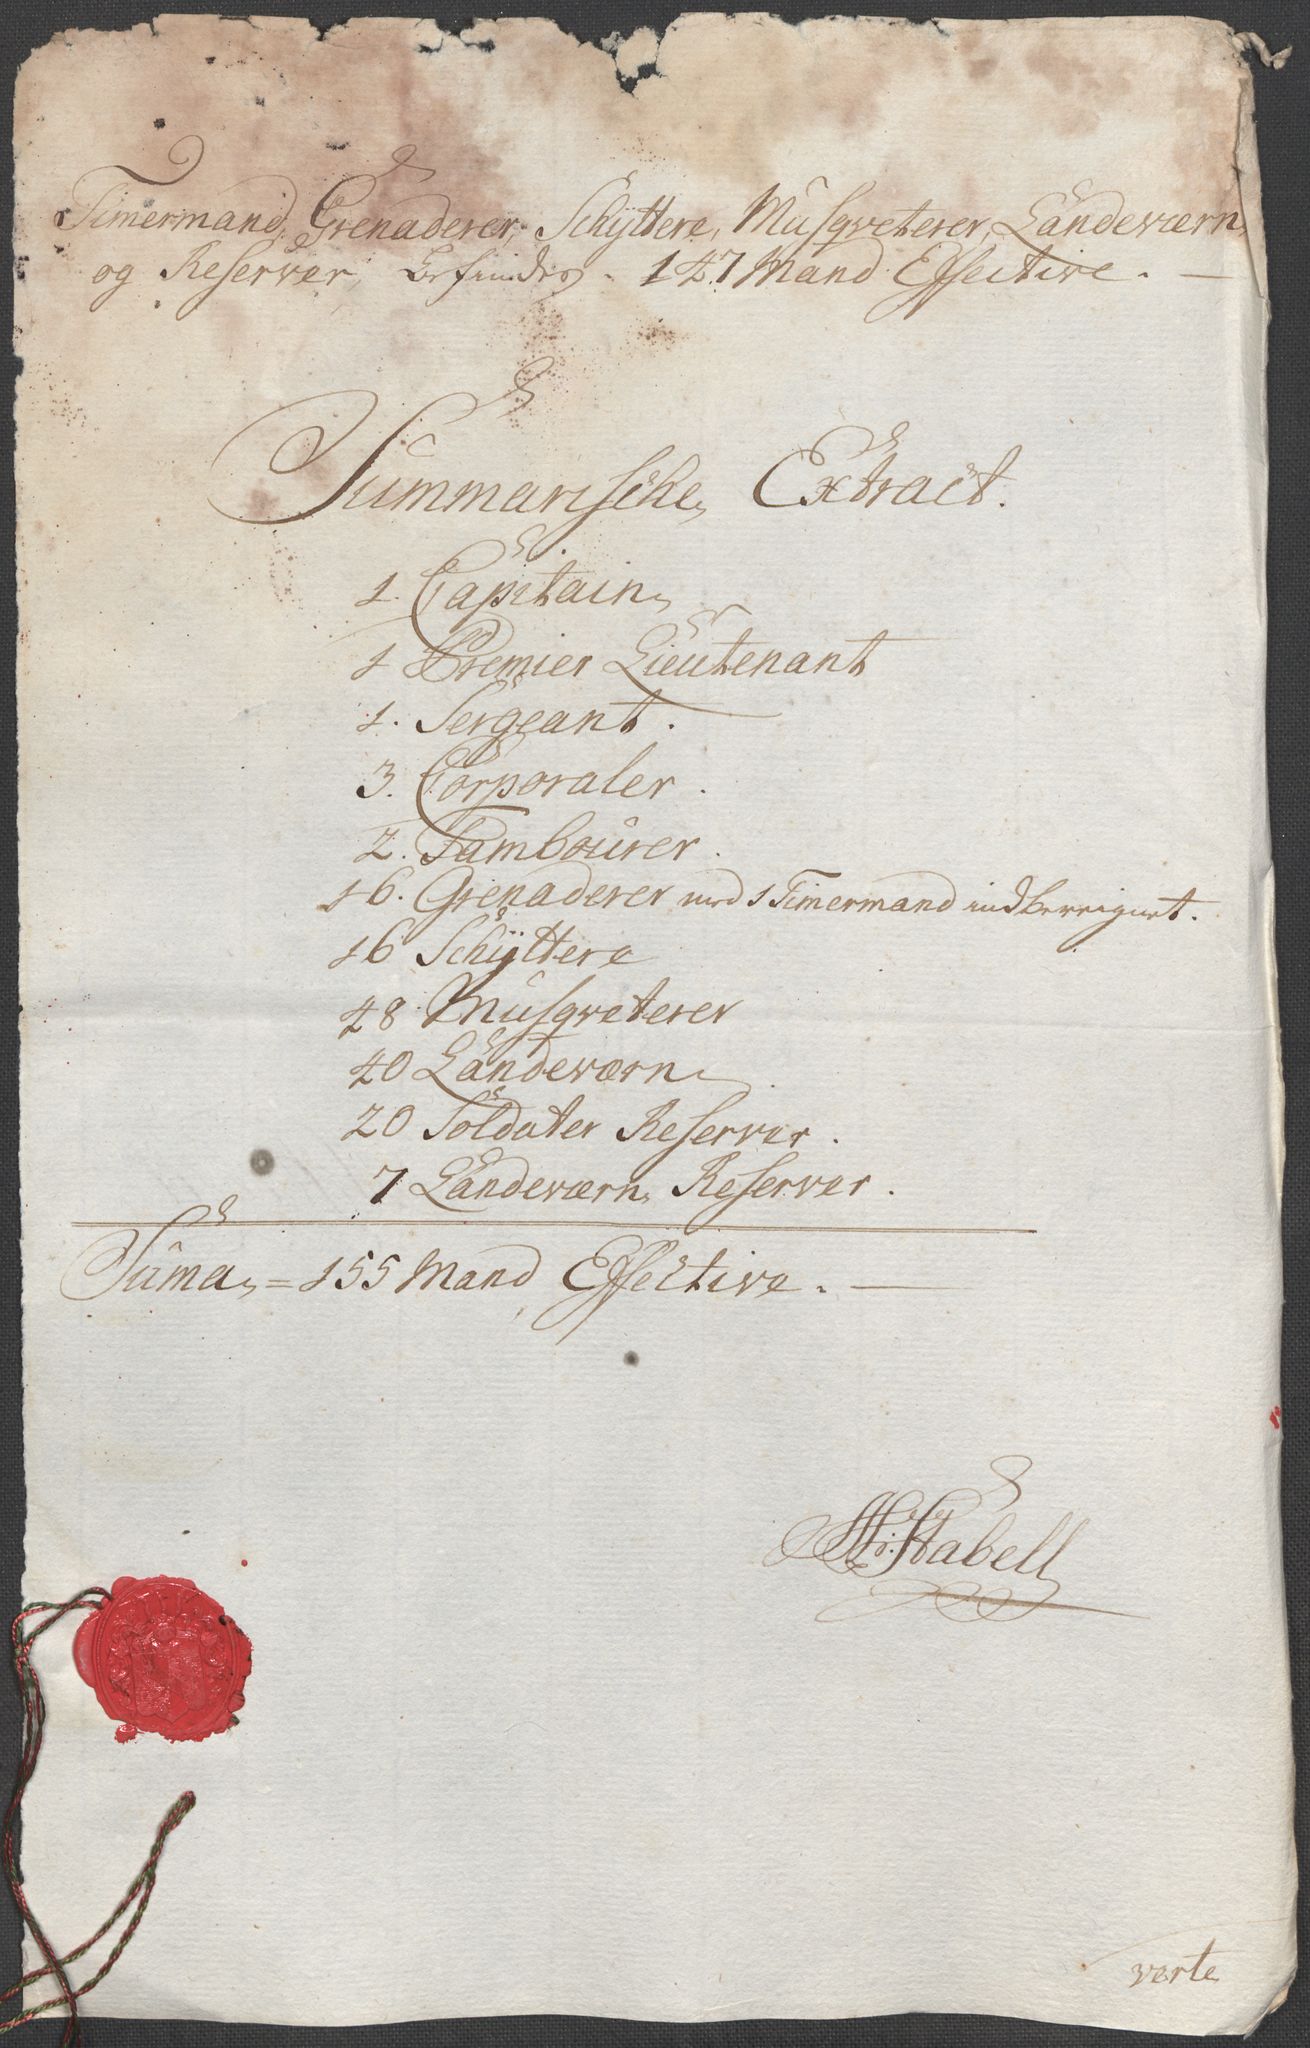 Timermand, Grenaderer, Schÿttere, Musqveterer, Landeværn,
og Reserver, befindes. 147 Mand Effective.
Summarische Extract.
1. Capitain
1 Premier Lieutenant
1. Sergeant.
3. Corporaler.
2. Tambourer.
16. Grenaderer med 1 Timermand indbereignet.
16 Schÿttere
48 Musqveterer
40 Landeværn
20 Soldater Reserver.
7 Landeværn Reserver.
Suma = 155 Mand Effective.
Stabell
verte